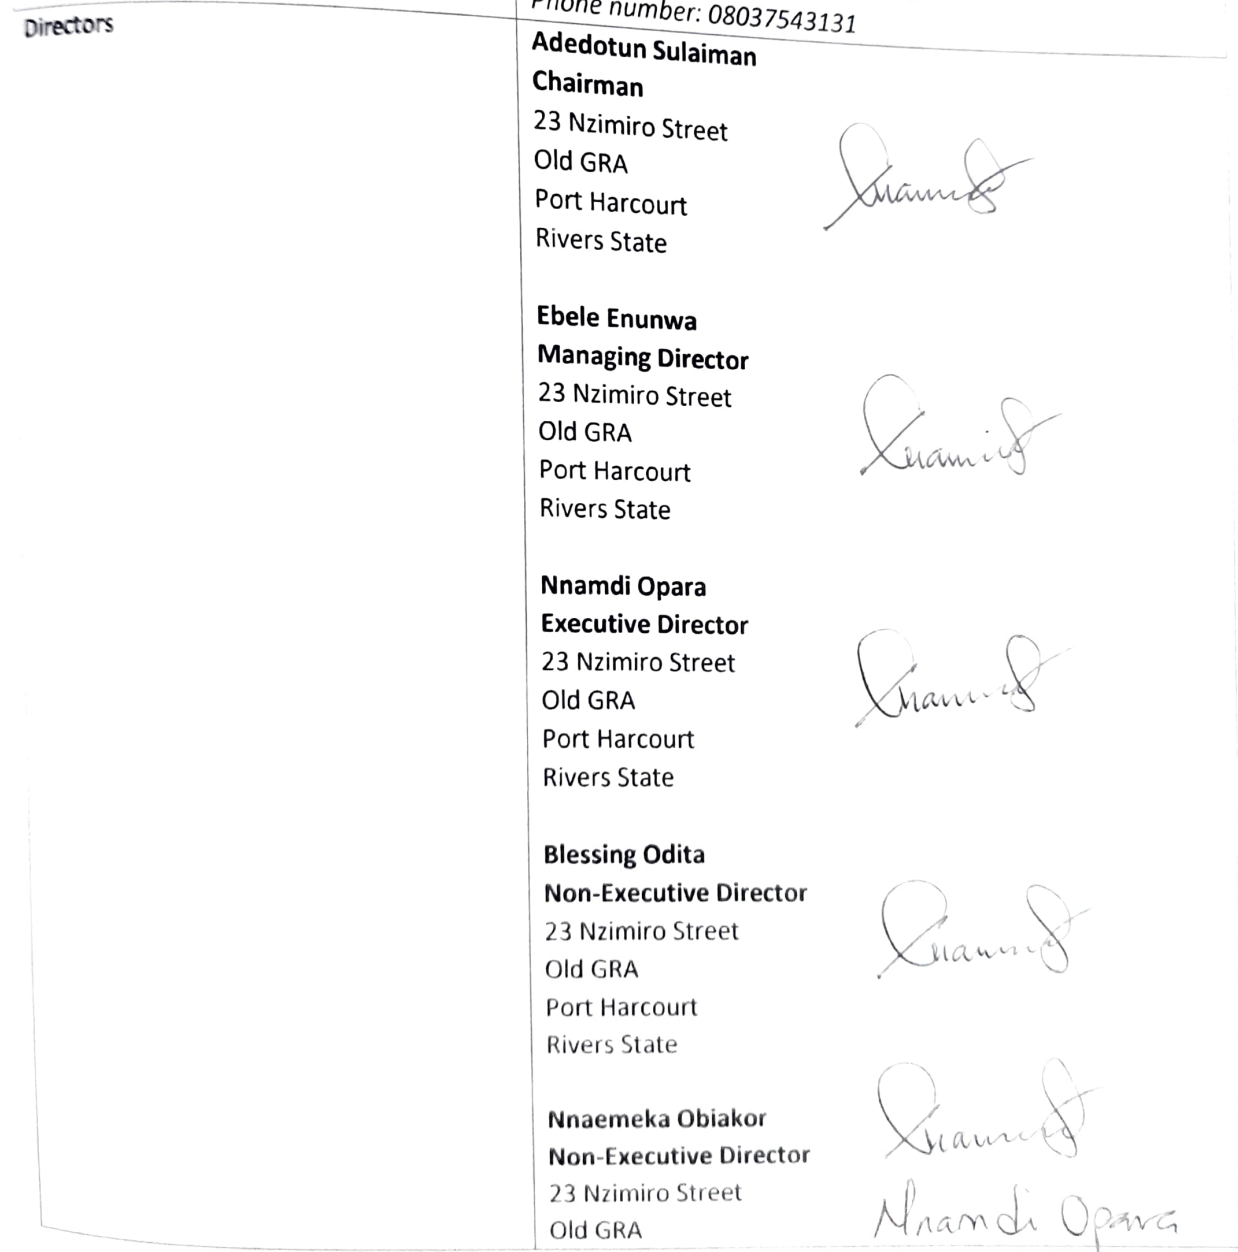 Phone number: 08037543131
Directors
Adedotun Sulaiman
Chairman
23 Nzimiro Street
Old GRA
Port Harcourt
Rivers State
Ebele Enunwa
Managing Director
23 Nzimiro Street
Old GRA
Port Harcourt
Rivers State
Nnamdi Opara
Executive Director
23 Nzimiro Street
Old GRA
Port Harcourt
Rivers State
Blessing Odita
Non-Executive Director
23 Nzimiro Street
Old GRA
Port Harcourt
Rivers State
Nnaemeka Obiakor
Non-Executive Director
23 Nzimiro Street
Old GRA
Nnamdi Opara